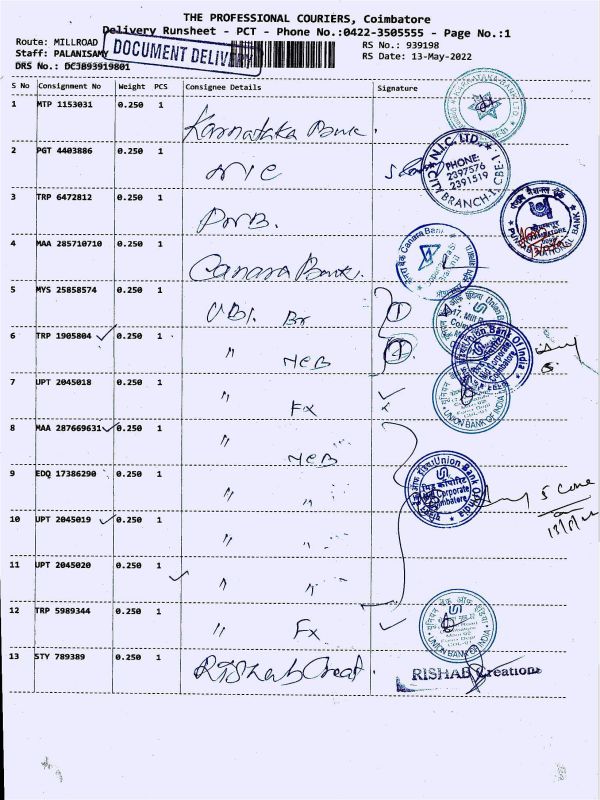 THE PROFESSIONAL COURIERS, Coimbatore
Delivery Runsheet - PCT - Phone No.:0422-3505555 - Page No.:1
Route: MILLROAD
RS No.: 939198
Staff: PALANISAMY
RS Date: 13-May-2022
DRS No.: DCJ893919801
DOCUMENT DELIVERY
S No Consignment No Weight PCS Consignee Details Signature
1 MTP 1153031 0.250 1
Karnataka Bank.
2 PGT 4403886 0.250 1
NIC
N.I.C. LTD.
PHONE:
2397576
2391519
CITY BRANCH-1, CBE-1.
3 TRP 6472812 0.250 1
PNB.
पंजाब नैशनल बैंक
PUNJAB NATIONAL BANK
4 MAA 285710710 0.250 1
Canara Bank.
Canara Bank
5 MYS 25858574 0.250 1
UBI. Br
1
17, Mill
6 TRP 1905804 0.250 1
" MCB
Union Bank Of India
Corporate
Coimbatore
7 UPT 2045018 0.250 1
" Fx
UNION BANK OF INDIA
8 MAA 287669631 0.250 1
" MCB
9 EDQ 17386290 0.250 1
" "
Union Bank Of India
मिड कॉर्पोरेट
Mid Corporate
Coimbatore
10 UPT 2045019 0.250 1
" "
11 UPT 2045020 0.250 1
" "
12 TRP 5989344 0.250 1
" Fx
यूनियन बैंक ऑफ इंडिया
UNION BANK OF INDIA
13 STY 789389 0.250 1
Rishab Creat.
RISHAB Creations